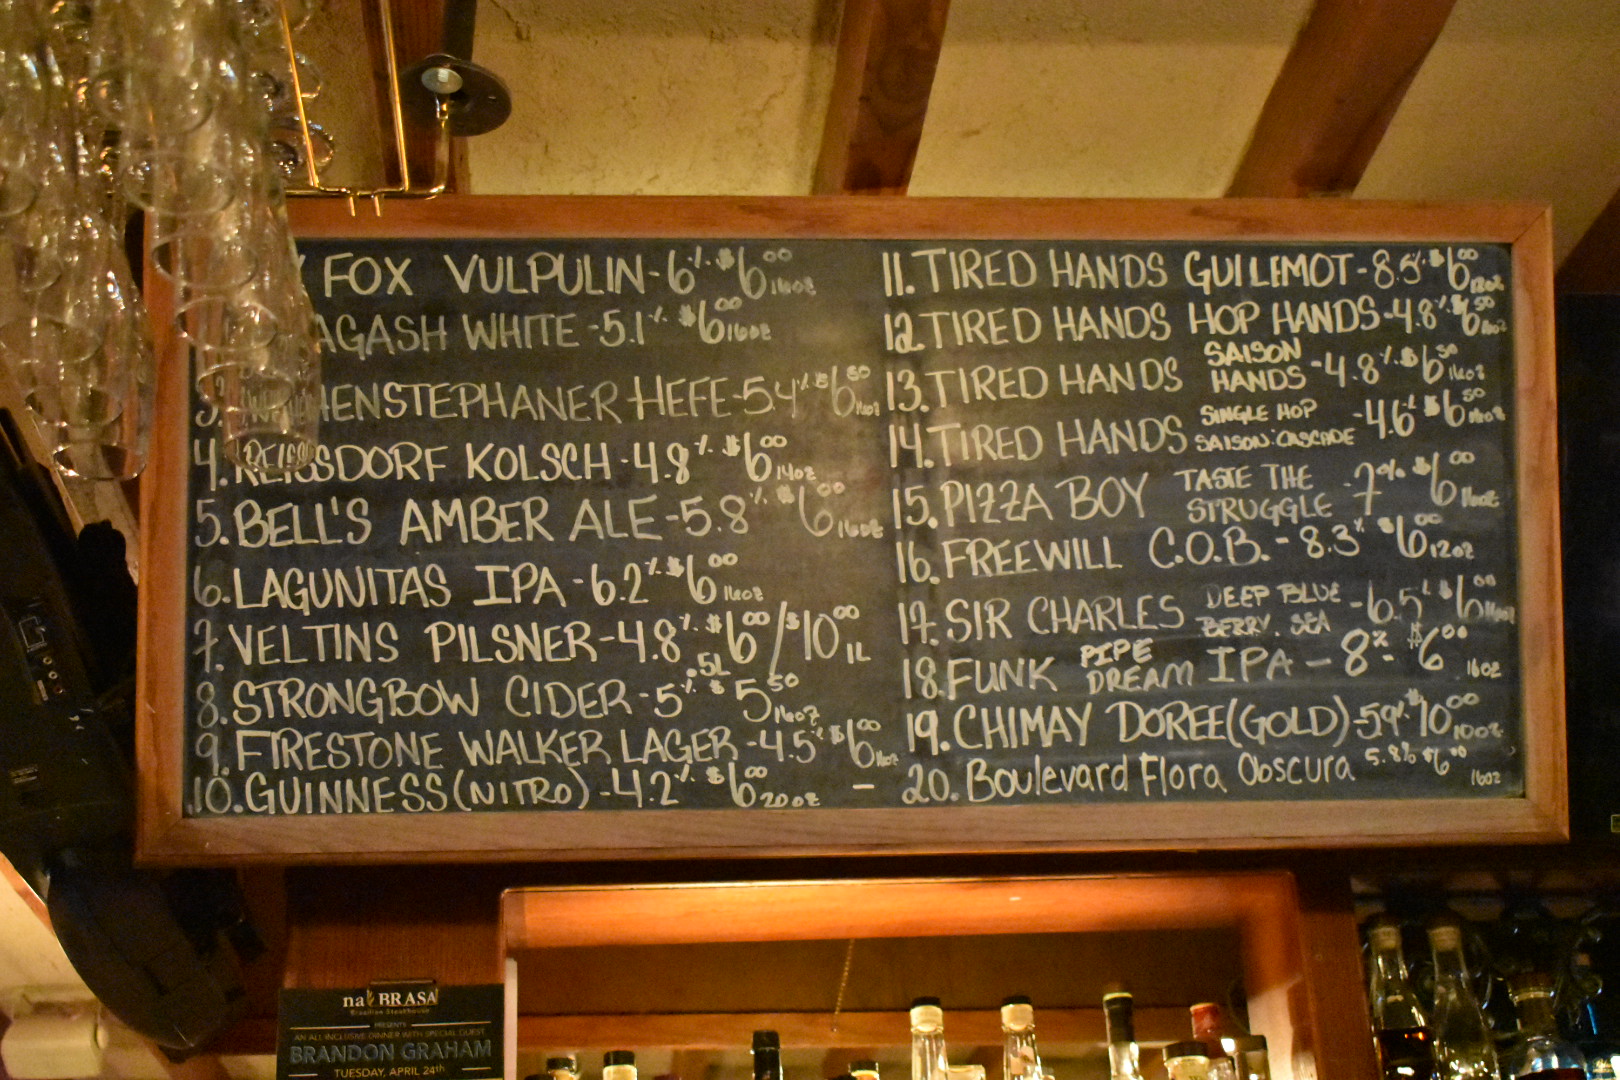 FOX VULPULIN-6% $6.00 16oz
AGASH WHITE-5.1% $6.00 16oz
3. HENSTEPHANER HEFE-5.4% $6.50 16oz
4. REISSDORF KOLSCH-4.8% $6.00 14oz
5. BELL'S AMBER ALE-5.8% $6.00 16oz
6. LAGUNITAS IPA-6.2% $6.00 16oz
7. VELTINS PILSNER-4.8% $6.00 .5L / $10.00 1L
8. STRONGBOW CIDER-5% $5.50 16oz
9. FIRESTONE WALKER LAGER-4.5% $6.00 16oz
10. GUINNESS (NITRO)-4.2% $6.00 20oz -
11. TIRED HANDS GUILEMOT-8.5% $6.00 12oz
12. TIRED HANDS HOP HANDS-4.8% $6.50 16oz
13. TIRED HANDS SAISON HANDS-4.8% $6.50 16oz
14. TIRED HANDS SINGLE HOP SAISON: CASCADE-4.6% $6.50 16oz
15. PIZZA BOY TASTE THE STRUGGLE-7% $6.00 16oz
16. FREEWILL C.O.B.-8.3% $6.00 12oz
17. SIR CHARLES DEEP BLUE BERRY. SEA-6.5% $6.00 16oz
18. FUNK PIPE DREAM IPA-8%- $6.00 16oz
19. CHIMAY DOREE (GOLD)-5.9% $10.00 10oz
20. Boulevard Flora Obscura 5.8% $6.00 16oz
na BRASA
Brazilian Steakhouse
PRESENTS
AN ALL-INCLUSIVE DINNER WITH SPECIAL GUEST
BRANDON GRAHAM
TUESDAY, APRIL 24th